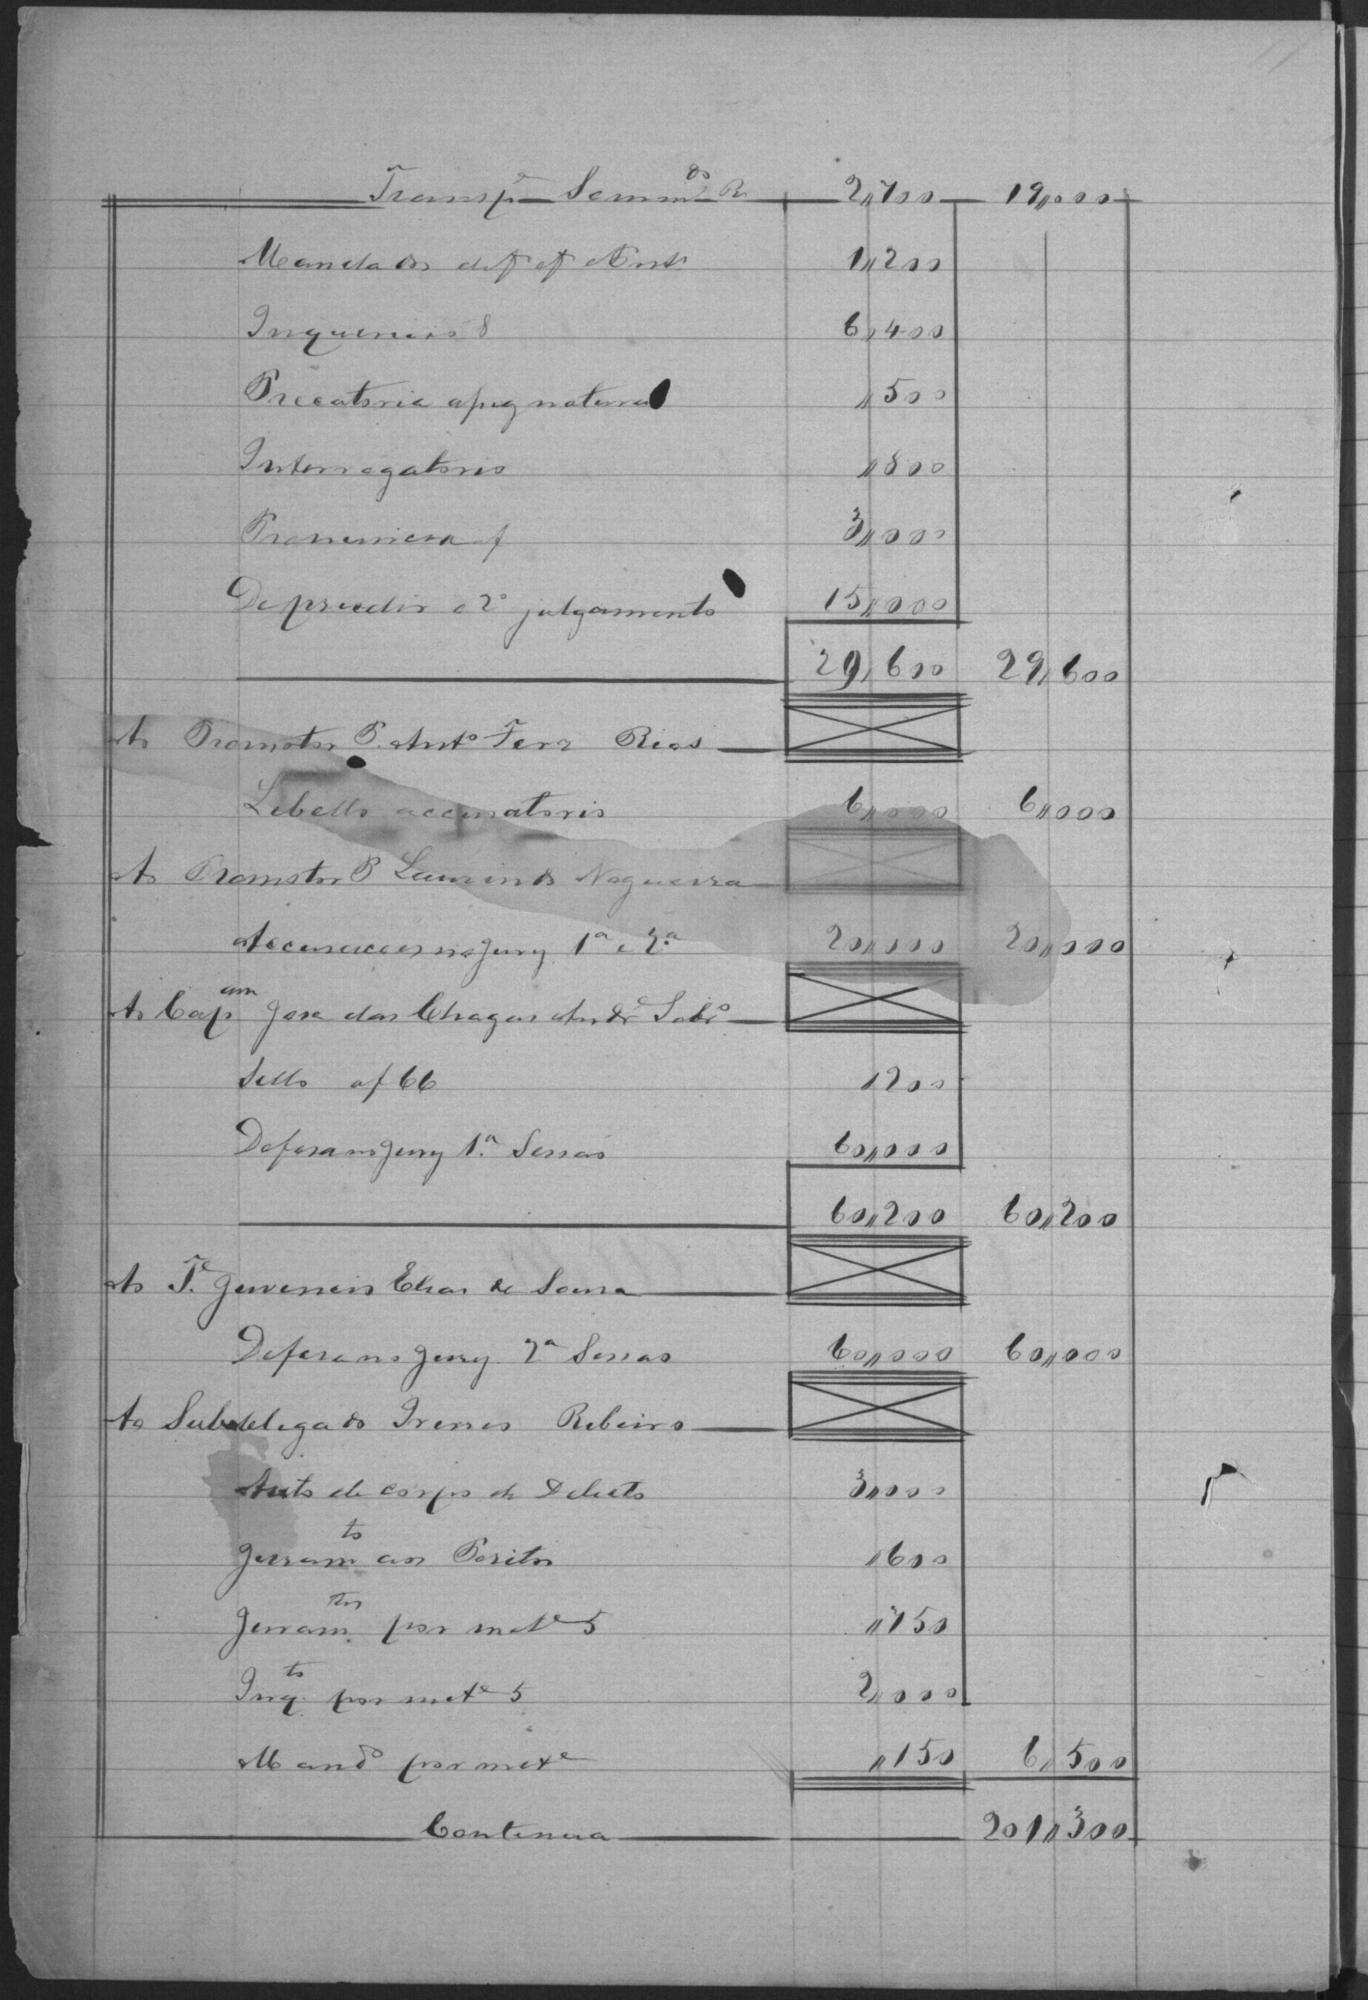 Transp.e Somm.do R. 2,,700 19,,000
Mandados def 1,,200
Inquericis 8 6,400
Precatoria apug natura ,,500
Interrogatorio ,,800
Pronuncia f 3,,000
De presedir o 2º julgamento 15,,000
29,600 29,600
Ao Promotor P. Antº Ferz Rios
Libello accusatorio 6,,000 6,,000
Ao Promotor P Laurindo Nogueira
Accusacões no jury 1ª e 2ª 20,,000 20,,000
Ao Cap.am Jose das Chagas Andr.e Sobrº
Sello af 66 ,200
Defesa no jury 1ª Sessao 60,,000
60,,200 60,,200
Ao Te Juvencio Elias de Sousa
Defesa no jury 2ª Sessao 60,,000 60,,000
Ao Subdelegado Irenes Ribeiro
Auto de corpo de Delicto 3,,000
Juram.to aos Peritos ,600
Juram.tos por mete 5 ,,750
Inq.to por mete 5 2,000
Mando por mete ,,150 6,500
Continua 201,,300